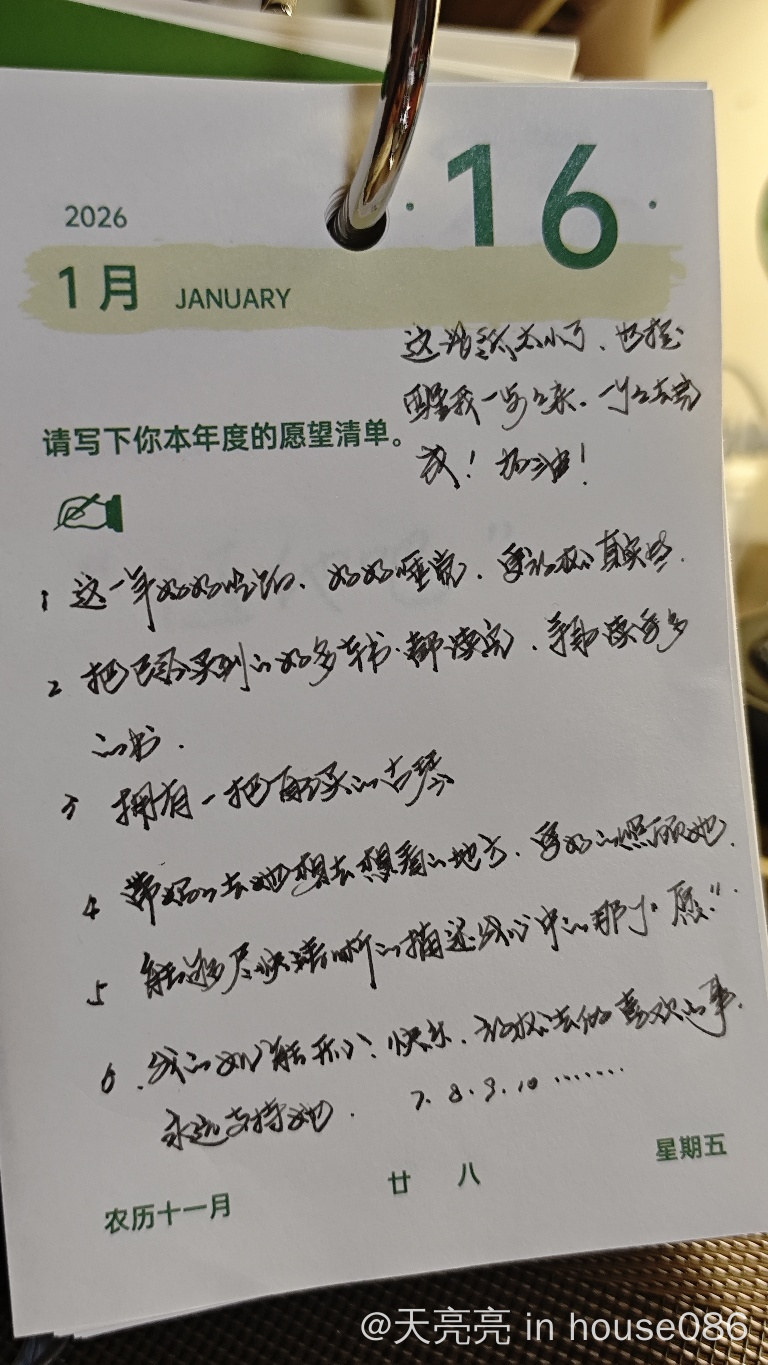 16
2026
1月 JANUARY
这张纸太小了、也提
醒我一步步来.一个个去完
成！加油！
请写下你本年度的愿望清单。
1 这一年好好吃饭、好好睡觉.更放松真实些.
2 把已经买到的好多本书.都读完.争取读更多
的书.
3 拥有一把再买的古琴
4 带妈妈去她想去想看的地方.更好的照顾她.
5 能够尽快清晰的描述我心中的那个"愿".
6.我的她能开心、快乐.放松去做喜欢的事.
永远支持她.
7.8.9.10.......
农历十一月 廿八 星期五
@天亮亮 in house086